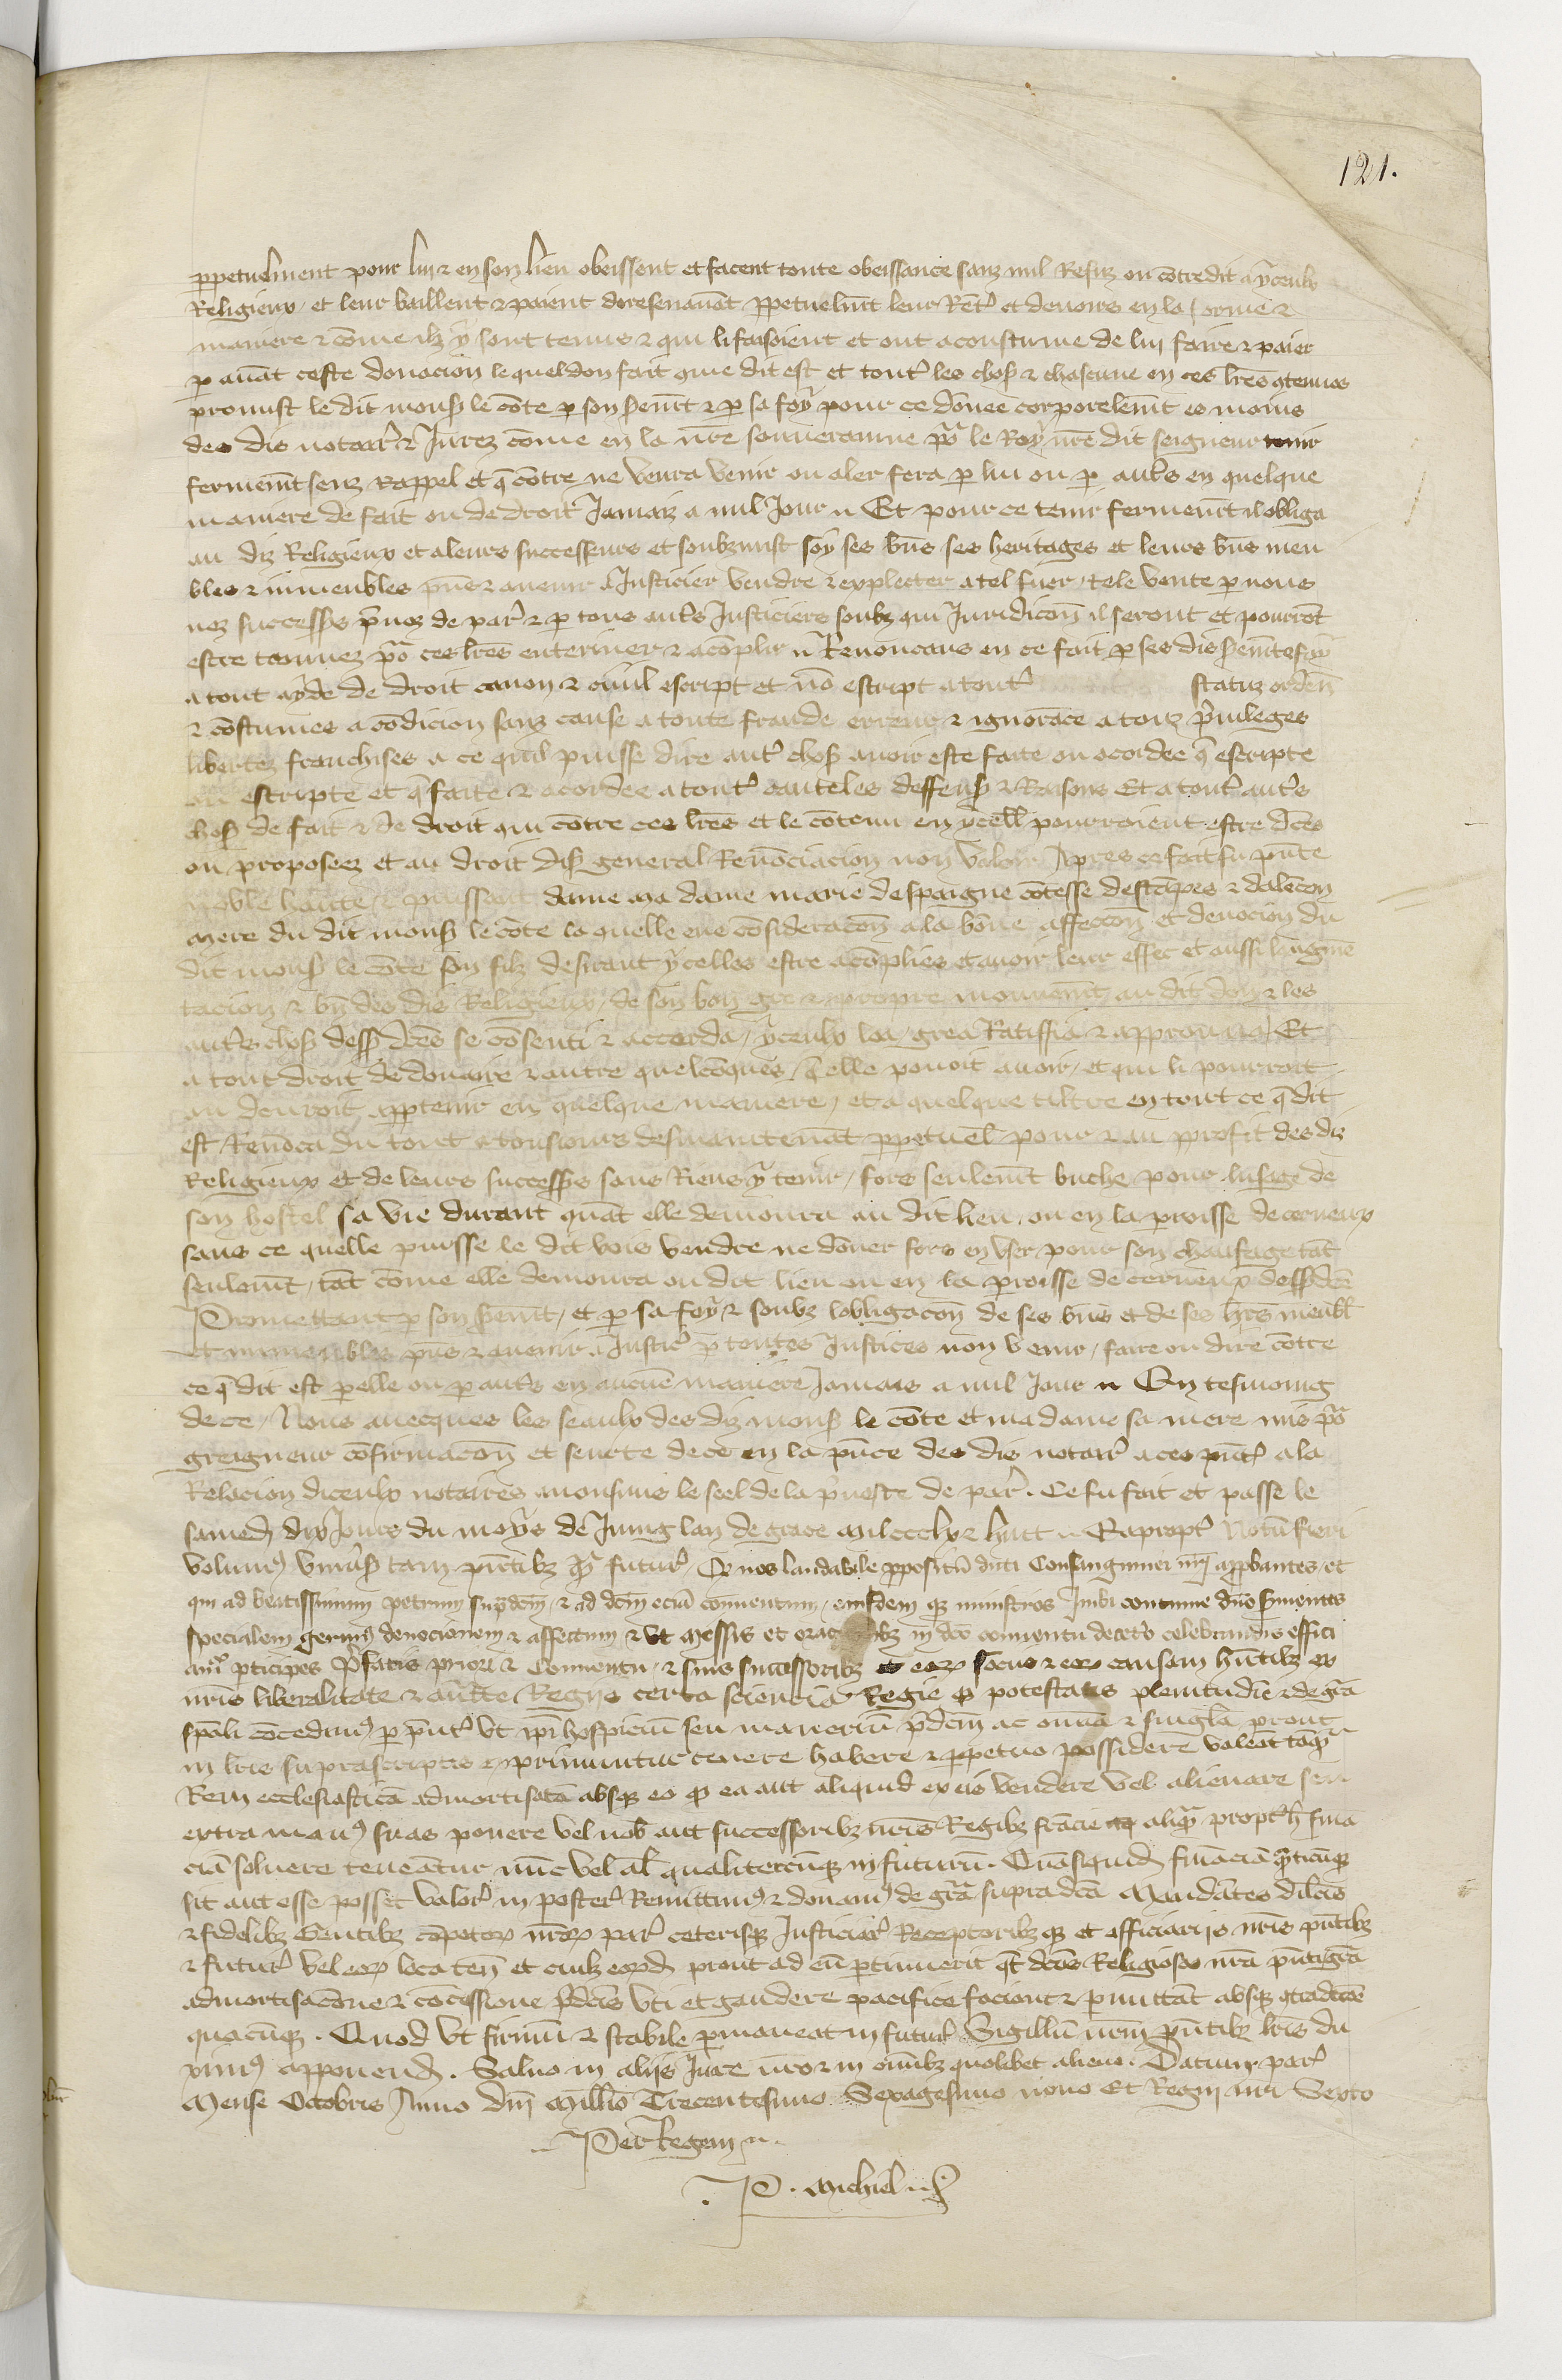 121.
ppetuelment pour lui & en son lieu obeissent et facent toute obeissance sanz nul Refuz ou cōtredit a yceulx
Religieux / et leur baillent & paient doresenauāt ppetuelmt leur Rēt' et deuoirs en la forme &
maniere & cōme ilz y sont tenus & qui li faisoient et ont acoustume de lui faire & paier
p auāt ceste donacion le quel don fait gme dit est et tout' les chos' & chascune en ces lres gtenues
promist le dit mons' le cōte p son s'emt & p sa foy pour ce dōnee corporelemt es mains
des dis notair' & Jurez cōme en la nre souueraine po' le Roy nre dit seigneur tenir
fermemt senz Rappel et q cōtre ne venra venir ou aler fera p lui ou p aut's en quelque
maniere de fait ou de droit Jamaiz a nul Jour Et pour ce tenir fermemt il obliga
au diz Religieux et a leurs successeurs et soubzmist soy ses bns ses heritages et leurs bns meu
bles & inmeubles pns & auenir a Justicier vendre & explecter a tel fuer / tele vente p nous
noz success's p'uoz de par' & p tous aut's Justiciers soubz qui Juridicōn il seront et pourrōt
estre trouuez po' ces lres enteriner & acōplir Renoncans en ce fait p ses dis s'emt & foy
a tout ayde de droit canon & ciuil escript et nō escript a tout' statuz orden
& coustumes a cōdicion sanz cause a toute fraude erreur & ignorāce a touz p'uileges
libertez franchises a ce quil puisse dire aut' chos' auoir este faite ou acordee q escripte
ou escripte et q faite & acordee a tout' cauteles deffens' & Raisons Et a tout' aut's
chos' de fait & de droit qui cōtre ces lres et le cōtenu en ycell' pourroient estre dces
ou proposees et au droit dis' general Renōciacion non valoir Apres ce fait fu pnte
noble haute & puissant dame ma dame marie despaigne cōtesse destāpes & dalēcon
mere du dit mons' le cōte la quelle eue cōsideracōn a la bōne affeccōn et deuocion du
dit mons' le cōte son filz desirant ycelles estre acōplies et auoir leur effec et aussi laugmē
tacion & bn des dis Religieux / de son bon gre & propre mouuemt au dit don & les
aut's chos' dess' dces se cōsenti & accorda / yceulx loa / grea Ratiffia & approuua Et
a tout droit de douaire & autre quelcōques / q elle pouoit auoir / et qui li pourroit
au deuroit apptenir en quelque maniere / et a quelque tiltre en tout ce q dit
est / Renōca du tout a tousiours desmaintenāt ppetuel' pour & au pprofit des diz
Religieux et de leurs success's sans Riens y tenir / fors seulemt buche pour lusage de
son hostel sa vie durant quāt elle demoura au dit lieu / ou en la proisse de cerneux
sans ce quelle puisse le dit bois vendre ne dōner fors en vser pour son chaufage tāt
seulemt / tāt cōme elle demoura ou dit lieu ou en la proisse de cerneux dess' dce
Promettant p son s'emt / et p sa foy & soubz lobligacōn de ses bns et de ses hrs meubl'
et inmeubles pns & auenir a Justic' p toutes Justices non venir / faire ou dire cōtre
ce q dit est p elle ou p aut's en aucune maniere Jamais a nul Jour En tesmoing
de ce / Nous auecques les seaulx des diz mons' le cōte et ma dame sa mere mis po'
greigneur cōfirmacōn et seurte de ce en la pnce des dis notair' a ces pnt' a la
Relacion diceulx notaires auons mis le seel de la p'uoste de par'. Ce fu fait et passe le
samedi dix Jours du moys de Juing lan de grace mil ccclx & huit Eapropt' Notū fieri
volum' vniu's' tam pntibz q futur' / Q nos laudabile ppositū dicti Consanguinei nri appbantes / et
qui ad beatissimum petrum sup'dcm / & ad dcm eciā conuentum / eiusdem q ministros Inibi continue dno s'uientes
specialem gerim' deuocionem & affectum & vt Messis et orac ibz in dco conuentu decet'o celebrandis effici
am' pticipes P'fatis priori & Conuentu / & suis successoribz & eor' locus & eor' causam hntibz ex
nris liberalitate & aucte Regijs certa sciencia Regie q potestatis plenitudie & de gra
spali cōcedim' p pnt' vt ipi hospiciū seu maneriū p'dcm ac omnia & singla prout
in lris suprascriptis exprimuntur tenere habere & ppetuo possidere valeāt tāq
Rem ecclesiasticā admortisatā absq eo q ea aut aliquid ex eis vendere vel alienare seu
extra man' suas ponere vel nob' aut successoribz nris Regibz francie aliq propt' h finā
ciā soluere teneātur nūc vel al' qualitercūq in futurū. Quāsiquid' financiā q'ticūq
sit aut esse posset valor' in poster' Remittim' & donam' de gra supra dca Mandātes dilcis
& fidelibz Gentibz cōpotor' nror' par' ceterisq Justiciar' Receptoribz q et officiarijs nris pntibz
& futur' vel eor' loca ten' et cuilz eord' prout ad eū ptinuerit qt dcos Religiosos nra pnti gra
admortisacōne & cōcessione p'dcis vti et gaudere pacifice faciant & pmittāt absq gtradcōe
quacūq. Quod vt firmū & stabile pmaneat in futur' Sigillū nrm pntibz lris du
xim' apponend'. Saluo in alijs Jure nro & in omibz quolibet alieno. Datum par'
Mense Octobris Anno Dni Millio Trecentesimo Sexagesimo nono Et Regni nri Sexto
Per Regem
P. Michiel